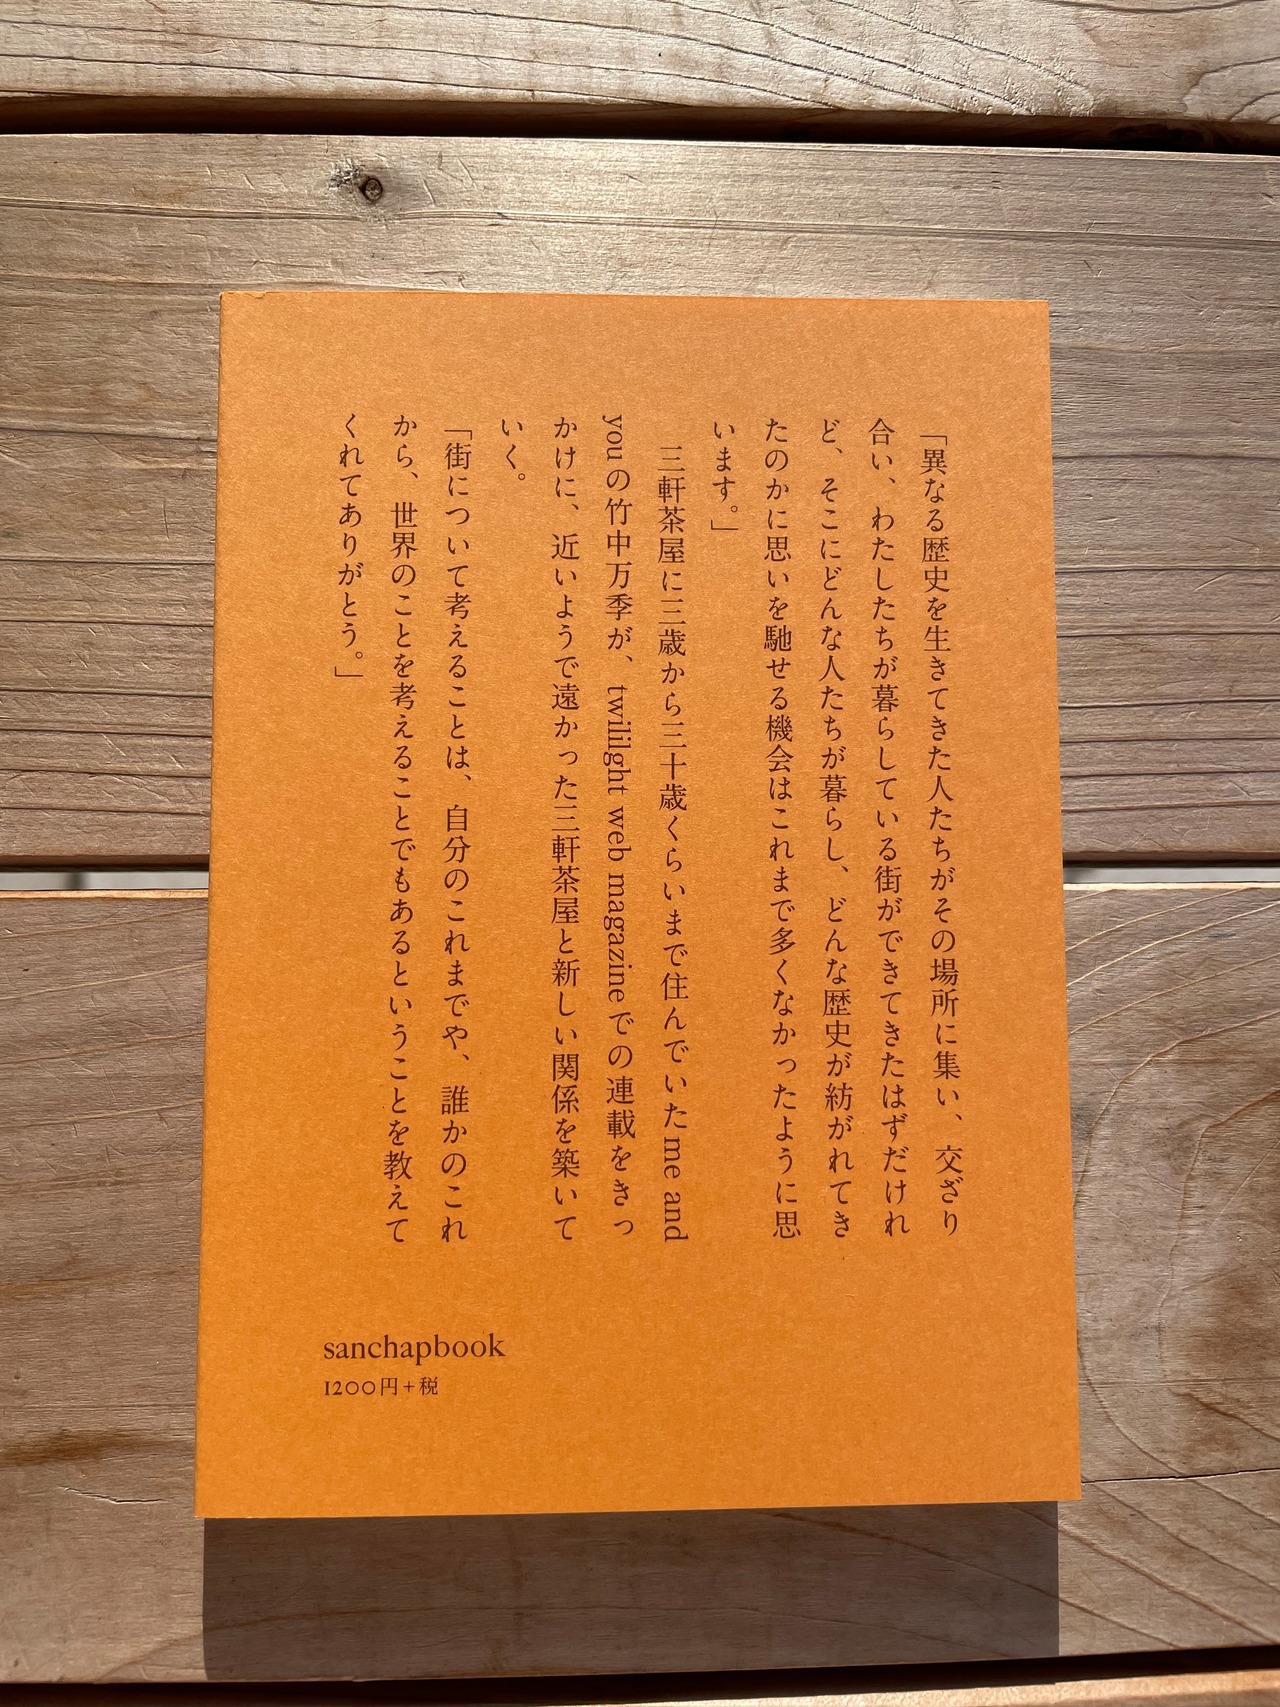 「異なる歴史を生きてきた人たちがその場所に集い、交ざり
合い、わたしたちが暮らしている街ができてきたはずだけれ
ど、そこにどんな人たちが暮らし、どんな歴史が紡がれてき
たのかに思いを馳せる機会はこれまで多くなかったように思
います。」
三軒茶屋に三歳から三十歳くらいまで住んでいたme and
youの竹中万季が、twililght web magazineでの連載をきっ
かけに、近いようで遠かった三軒茶屋と新しい関係を築いて
いく。
「街について考えることは、自分のこれまでや、誰かのこれ
から、世界のことを考えることでもあるということを教えて
くれてありがとう。」
sanchapbook
1200円+税